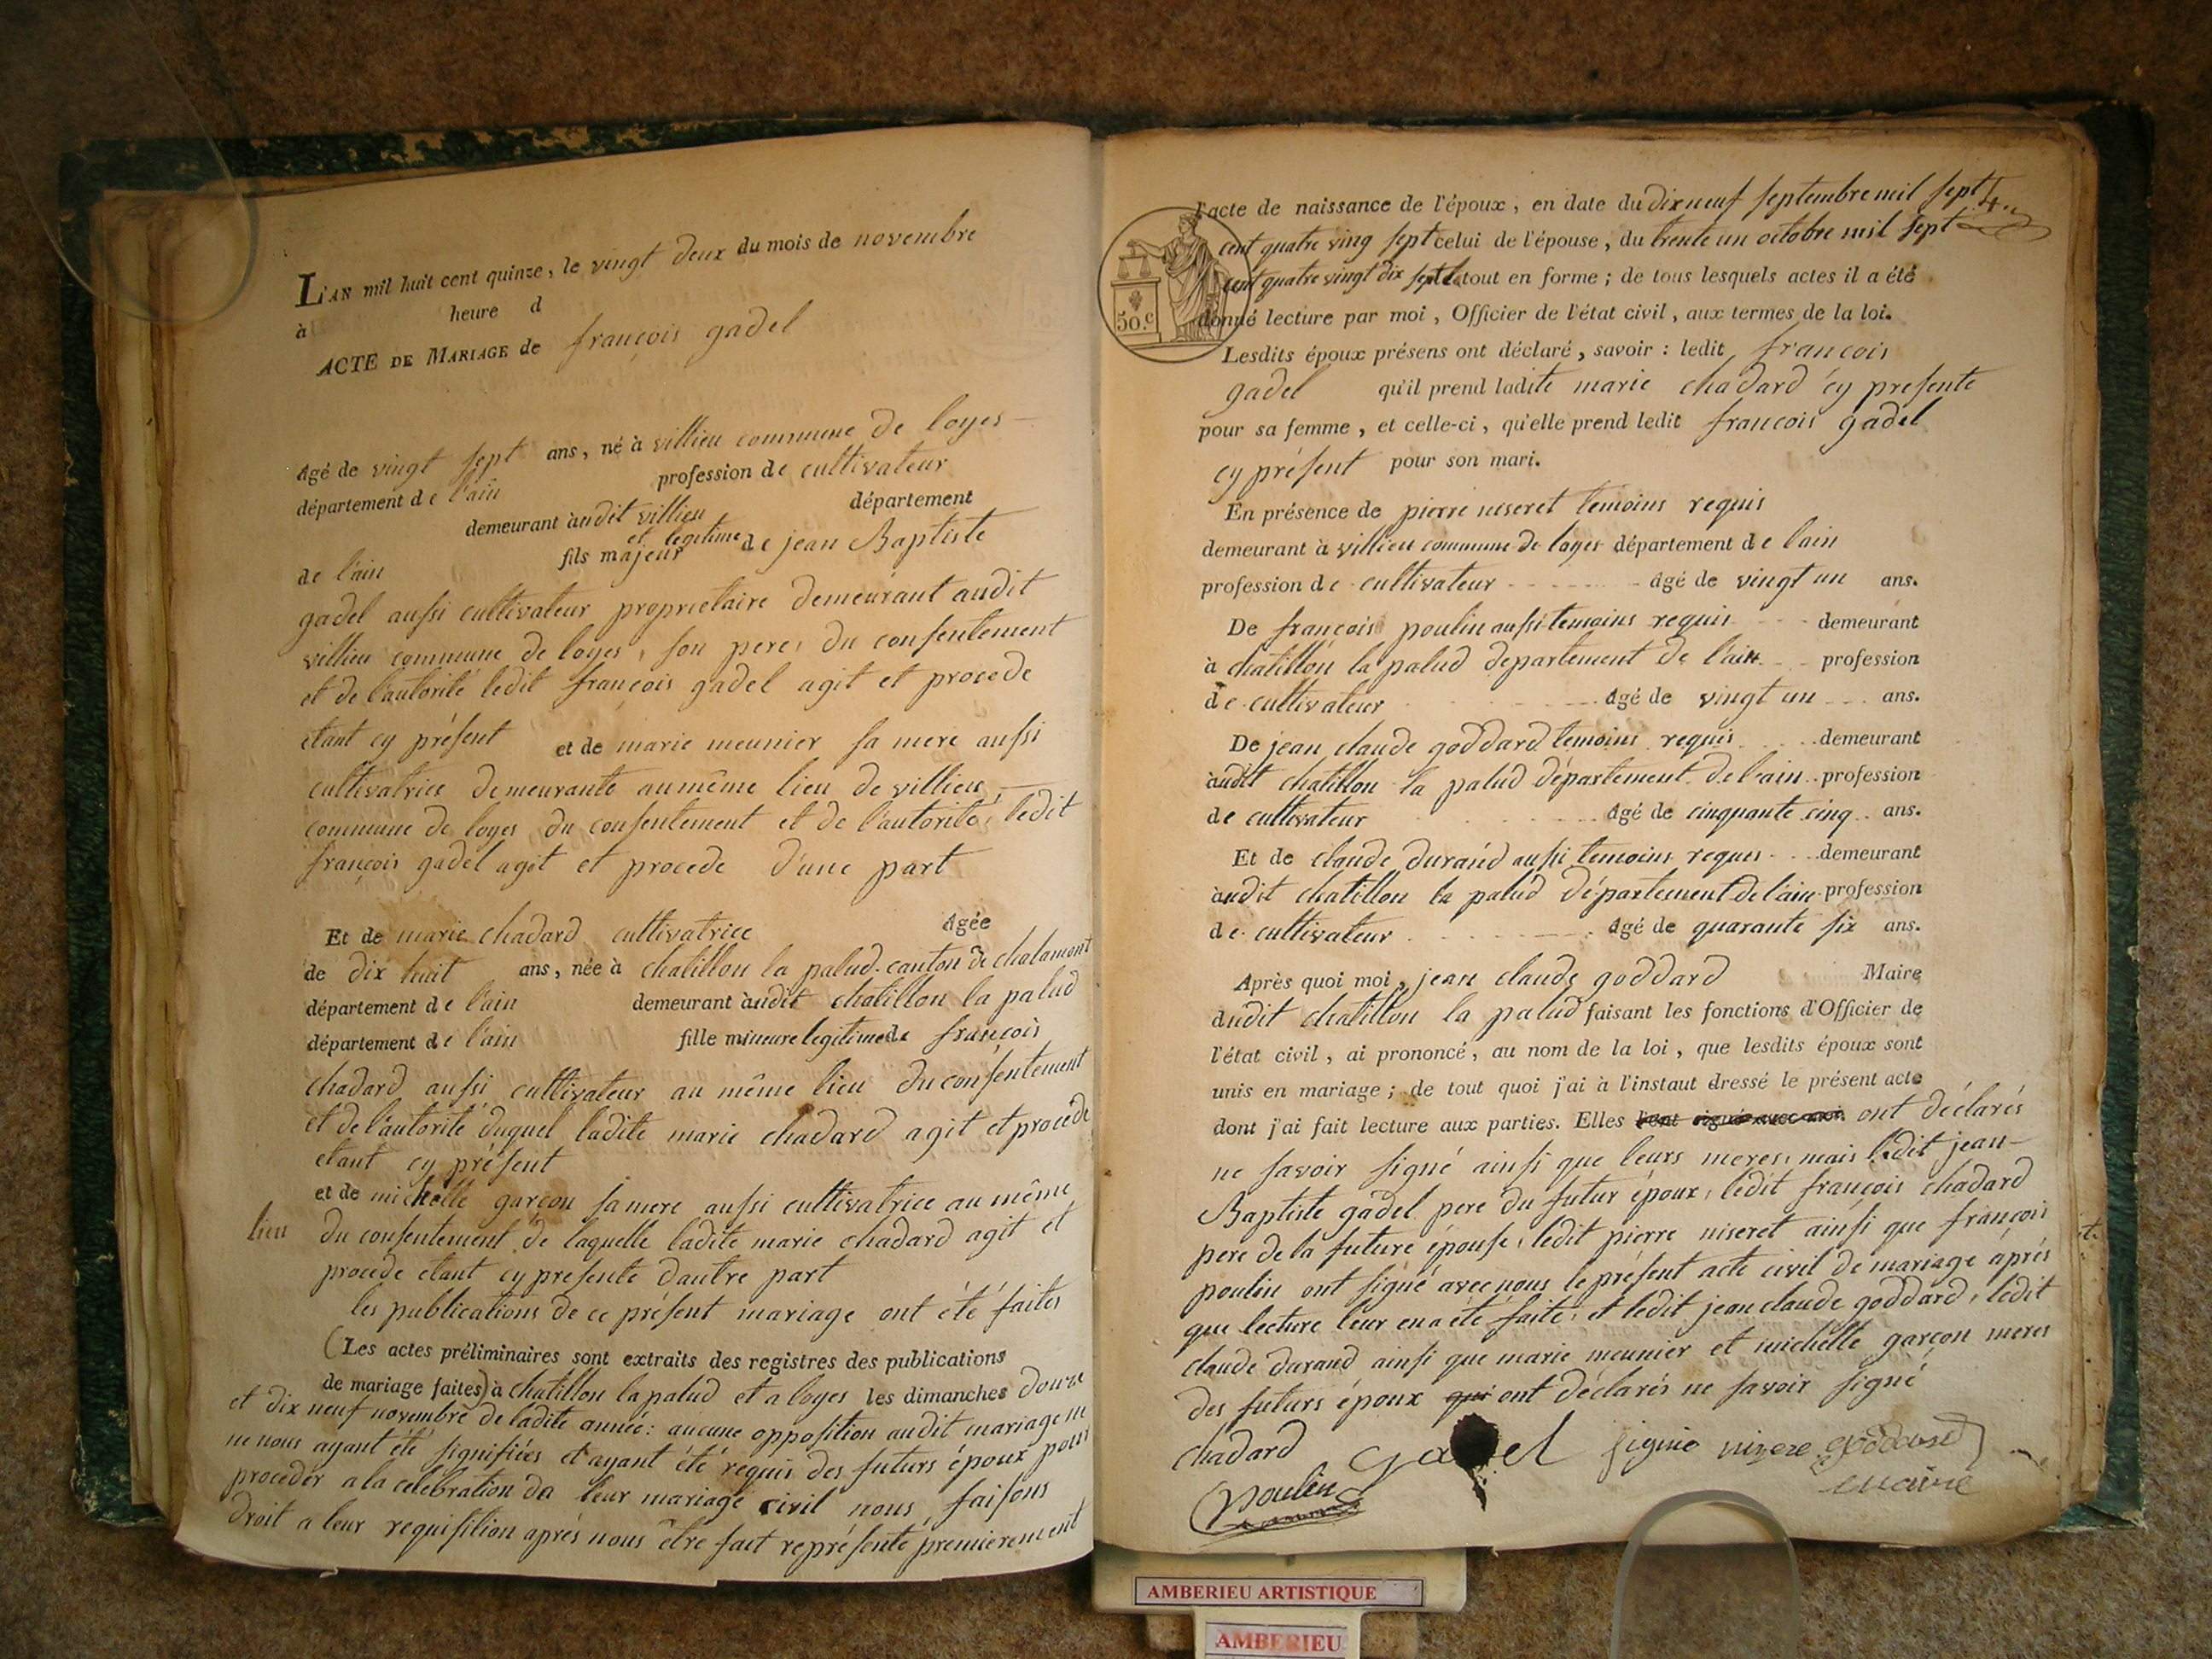 L'AN mil huit cent quinze, le vingt deux du mois de novembre
à heure d
ACTE DE MARIAGE de françois gadel
Agé de vingt sept ans, né à villieu commune de loyes
département de l'ain profession de cultivateur
demeurant audit villieu département
et legitime
de l'ain fils majeur de jean Baptiste
gadel aussi cultivateur proprietaire demeurant audit
villieu commune de loyes, son pere, du consentement
et de l'autorité ledit françois gadel agit et procede
etant cy présent et de marie meunier sa mere aussi
cultivatrice demeurante au même lieu de villieu
commune de loyes du consentement et de l'autorité, ledit
françois gadel agit et procede d'une part
Et de marie chadard cultivatrice Agée
de dix huit ans, née à chatillon la palud canton de chalamont
département de l'ain demeurant audit chatillon la palud
département de l'ain fille mineure legitime de françois
chadard aussi cultivateur au même lieu du consentement
et de l'autorité duquel ladite marie chadard agit et procede
etant cy présent
et de michelle garçon sa mere aussi cultivatrice au même
lieu du consentement de laquelle ladite marie chadard agit et
procede etant cy presente d'autre part
les publications de ce présent mariage ont été faites
(Les actes préliminaires sont extraits des registres des publications
de mariage faites) à chatillon la palud et a loyes les dimanches douze
et dix neuf novembre de ladite année: aucune opposition audit mariage ne
ne nous ayant été signifiées et ayant été requis des futurs époux pour
procéder a la celebration da leur mariage civil nous faisons
droit a leur requisition aprés nous être fait représenté premierement
l'acte de naissance de l'époux, en date du dix neuf septembre mil sept
cent quatre ving sept celui de l'épouse, du trente un octobre mil sept
cent quatre vingt dix sept le tout en forme; de tous lesquels actes il a été
donné lecture par moi, Officier de l'état civil, aux termes de la loi.
50.c
Lesdits époux présens ont déclaré, savoir: ledit françois
gadel qu'il prend ladite marie chadard cy presente
pour sa femme, et celle-ci, qu'elle prend ledit françois gadel
cy présent pour son mari.
En présence de pierre niseret temoins requis
demeurant à villieu commune de loyes département de l'ain
profession de cultivateur âgé de vingt un ans.
De françois poulin aussi temoins requis demeurant
à chatillon la palud departement de l'ain profession
de cultivateur âgé de vingt un ans.
De jean claude goddard temoins requis demeurant
audit chatillon la palud département de l'ain profession
de cultivateur âgé de cinquante cinq ans.
Et de claude durand aussi temoins requis demeurant
audit chatillon la palud département de l'ain profession
de cultivateur âgé de quarante six ans.
Après quoi moi, jean claude goddard Maire
dudit chatillon la palud faisant les fonctions d'Officier de
l'état civil, ai prononcé, au nom de la loi, que lesdits époux sont
unis en mariage; de tout quoi j'ai à l'instaut dressé le présent acte
dont j'ai fait lecture aux parties. Elles l'ont signé avec moi ont déclarés
ne savoir signé ainsi que leurs meres, mais ledit jean
Baptiste gadel pere du futur époux, ledit françois chadard
pere de la future épouse, ledit pierre niseret ainsi que françois
poulin ont signé avec nous le présent acte civil de mariage aprés
que lecture leur en a été faite; et ledit jean claude goddard, ledit
claude durand ainsi que marie meunier et michelle garçon meres
des futurs époux qui ont déclarés ne savoir signé
chadard gadel
goddard
poulin maire
AMBERIEU ARTISTIQUE
AMBERIEU